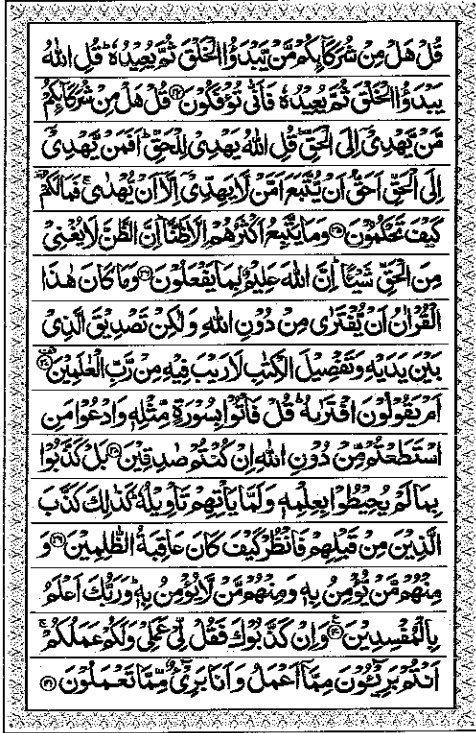 قُلْ هَلْ مِنْ شُرَكَآئِكُمْ مَّنْ يَّبْدَؤُا الْخَلْقَ ثُمَّ يُعِيْدُهٗ ؕ قُلِ اللّٰهُ
يَبْدَؤُا الْخَلْقَ ثُمَّ يُعِيْدُهٗ فَاَنّٰى تُؤْفَكُوْنَ ﴿۳۴﴾ قُلْ هَلْ مِنْ شُرَكَآئِكُمْ
مَّنْ يَّهْدِيْۤ اِلَى الْحَقِّ ؕ قُلِ اللّٰهُ يَهْدِيْ لِلْحَقِّ ؕ اَفَمَنْ يَّهْدِيْۤ
اِلَى الْحَقِّ اَحَقُّ اَنْ يُّتَّبَعَ اَمَّنْ لَّا يَهِدِّيْۤ اِلَّاۤ اَنْ يُّهْدٰى ۚ فَمَا لَكُمْ ۫
كَيْفَ تَحْكُمُوْنَ ﴿۳۵﴾ وَمَا يَتَّبِعُ اَكْثَرُهُمْ اِلَّا ظَنًّا ؕ اِنَّ الظَّنَّ لَا يُغْنِيْ
مِنَ الْحَقِّ شَيْئًا ؕ اِنَّ اللّٰهَ عَلِيْمٌۢ بِمَا يَفْعَلُوْنَ ﴿۳۶﴾ وَمَا كَانَ هٰذَا
الْقُرْاٰنُ اَنْ يُّفْتَرٰى مِنْ دُوْنِ اللّٰهِ وَلٰكِنْ تَصْدِيْقَ الَّذِيْ
بَيْنَ يَدَيْهِ وَتَفْصِيْلَ الْكِتٰبِ لَا رَيْبَ فِيْهِ مِنْ رَّبِّ الْعٰلَمِيْنَ ﴿۳۷﴾
اَمْ يَقُوْلُوْنَ افْتَرٰىهُ ؕ قُلْ فَاْتُوْا بِسُوْرَةٍ مِّثْلِهٖ وَادْعُوْا مَنِ
اسْتَطَعْتُمْ مِّنْ دُوْنِ اللّٰهِ اِنْ كُنْتُمْ صٰدِقِيْنَ ﴿۳۸﴾ بَلْ كَذَّبُوْا
بِمَا لَمْ يُحِيْطُوْا بِعِلْمِهٖ وَلَمَّا يَاْتِهِمْ تَاْوِيْلُهٗ ؕ كَذٰلِكَ كَذَّبَ
الَّذِيْنَ مِنْ قَبْلِهِمْ فَانْظُرْ كَيْفَ كَانَ عَاقِبَةُ الظّٰلِمِيْنَ ﴿۳۹﴾ وَ
مِنْهُمْ مَّنْ يُّؤْمِنُ بِهٖ وَمِنْهُمْ مَّنْ لَّا يُؤْمِنُ بِهٖ ؕ وَرَبُّكَ اَعْلَمُ
بِالْمُفْسِدِيْنَ ﴿۴۰﴾ وَاِنْ كَذَّبُوْكَ فَقُلْ لِّيْ عَمَلِيْ وَلَكُمْ عَمَلُكُمْ ۚ
اَنْتُمْ بَرِيْٓـئُوْنَ مِمَّاۤ اَعْمَلُ وَاَنَا بَرِيْٓءٌ مِّمَّا تَعْمَلُوْنَ ﴿۴۱﴾